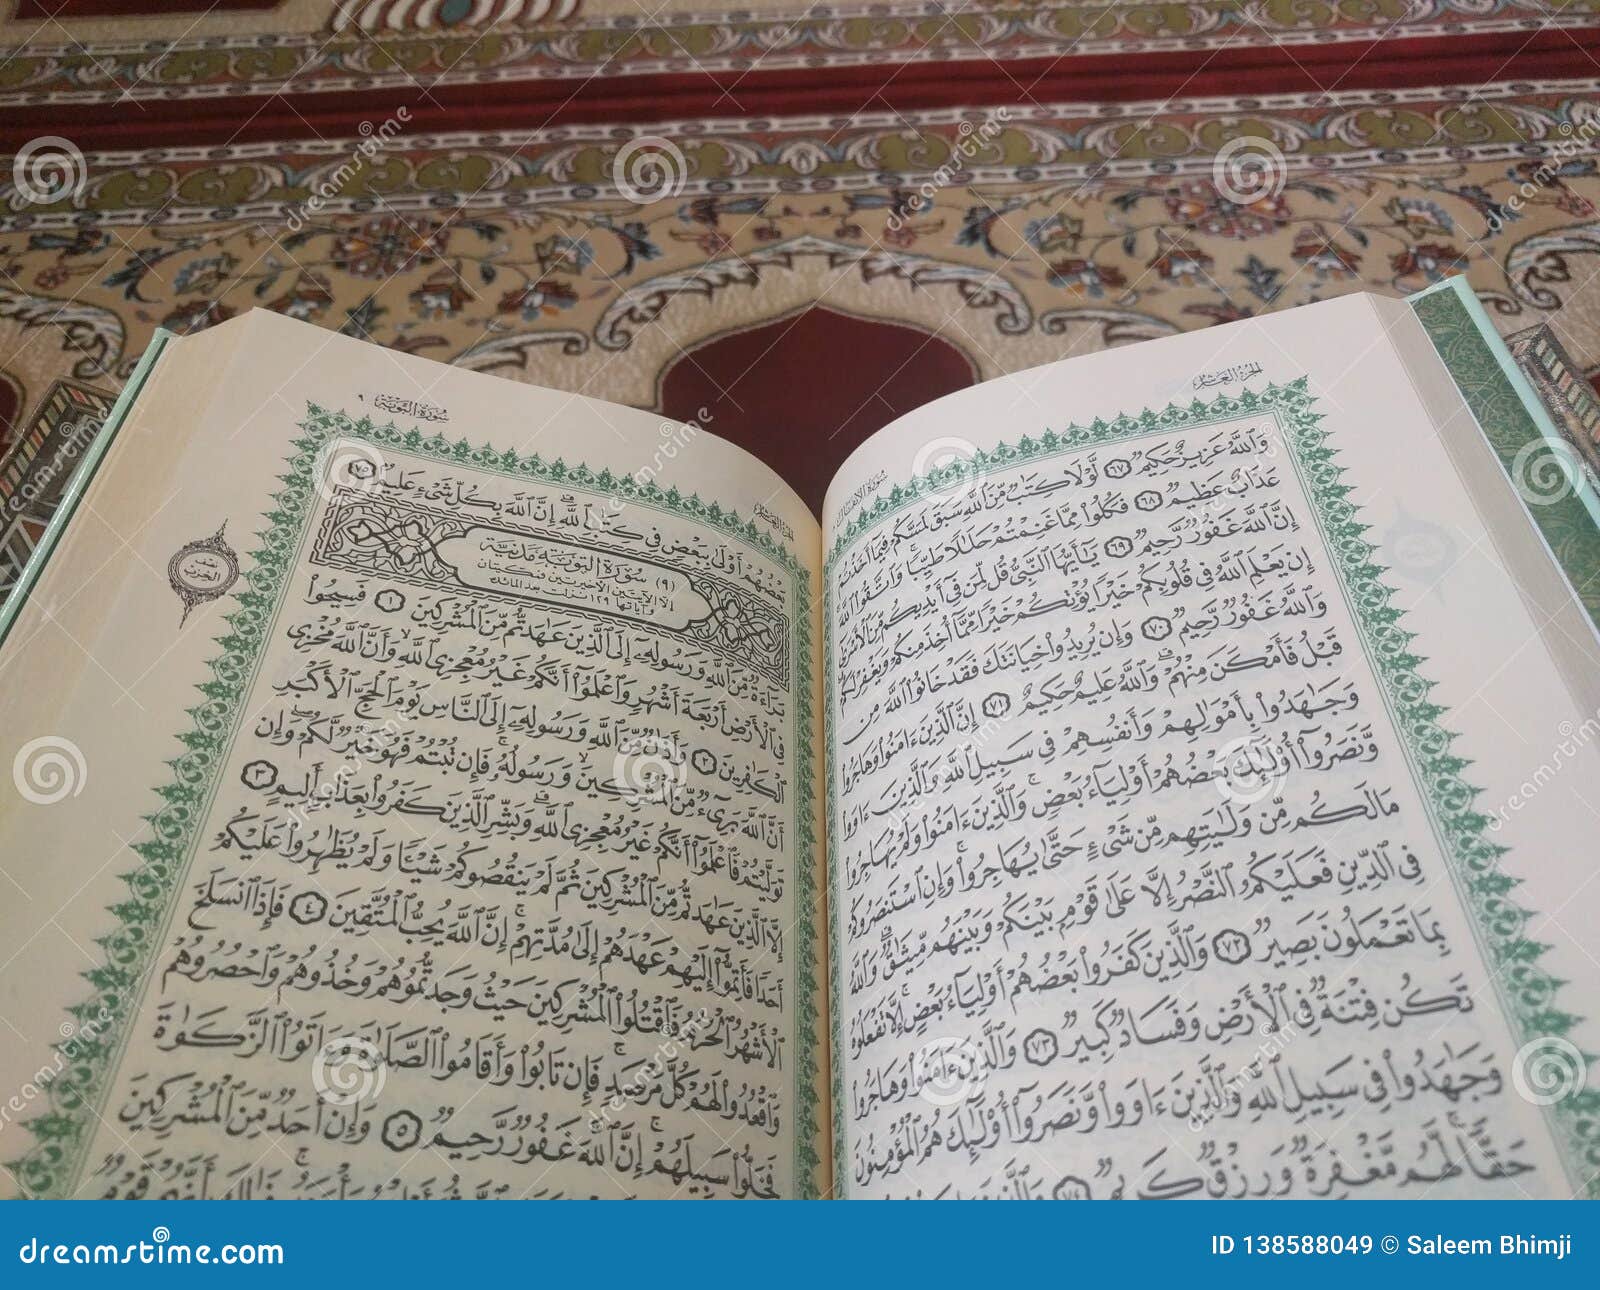 الجُزءُ العَاشِرُ
سُورَةُ الأَنفَالِ
وَاللَّهُ عَزِيزٌ حَكِيمٌ ٦٧ لَّوْلَا كِتَٰبٌ مِّنَ اللَّهِ سَبَقَ لَمَسَّكُمْ فِيمَآ أَخَذْتُمْ
عَذَابٌ عَظِيمٌ ٦٨ فَكُلُوا مِمَّا غَنِمْتُمْ حَلَٰلًا طَيِّبًا وَاتَّقُوا اللَّهَ
إِنَّ اللَّهَ غَفُورٌ رَّحِيمٌ ٦٩ يَٰٓأَيُّهَا النَّبِىُّ قُل لِّمَن فِىٓ أَيْدِيكُم مِّنَ الْأَسْرَىٰٓ
إِن يَعْلَمِ اللَّهُ فِى قُلُوبِكُمْ خَيْرًا يُؤْتِكُمْ خَيْرًا مِّمَّآ أُخِذَ مِنكُمْ وَيَغْفِرْ لَكُمْ
وَاللَّهُ غَفُورٌ رَّحِيمٌ ٧٠ وَإِن يُرِيدُوا خِيَانَتَكَ فَقَدْ خَانُوا اللَّهَ مِن
قَبْلُ فَأَمْكَنَ مِنْهُمْ وَاللَّهُ عَلِيمٌ حَكِيمٌ ٧١ إِنَّ الَّذِينَ ءَامَنُوا وَهَاجَرُوا
وَجَٰهَدُوا بِأَمْوَٰلِهِمْ وَأَنفُسِهِمْ فِى سَبِيلِ اللَّهِ وَالَّذِينَ ءَاوَوا
وَّنَصَرُوٓا أُولَٰٓئِكَ بَعْضُهُمْ أَوْلِيَآءُ بَعْضٍ وَالَّذِينَ ءَامَنُوا وَلَمْ يُهَاجِرُوا
مَا لَكُم مِّن وَلَٰيَتِهِم مِّن شَىْءٍ حَتَّىٰ يُهَاجِرُوا وَإِنِ اسْتَنصَرُوكُمْ
فِى الدِّينِ فَعَلَيْكُمُ النَّصْرُ إِلَّا عَلَىٰ قَوْمٍ بَيْنَكُمْ وَبَيْنَهُم مِّيثَٰقٌ وَاللَّهُ
بِمَا تَعْمَلُونَ بَصِيرٌ ٧٢ وَالَّذِينَ كَفَرُوا بَعْضُهُمْ أَوْلِيَآءُ بَعْضٍ إِلَّا تَفْعَلُوهُ
تَكُن فِتْنَةٌ فِى الْأَرْضِ وَفَسَادٌ كَبِيرٌ ٧٣ وَالَّذِينَ ءَامَنُوا وَهَاجَرُوا
وَجَٰهَدُوا فِى سَبِيلِ اللَّهِ وَالَّذِينَ ءَاوَوا وَّنَصَرُوٓا أُولَٰٓئِكَ هُمُ الْمُؤْمِنُونَ
حَقًّا لَّهُم مَّغْفِرَةٌ وَرِزْقٌ كَرِيمٌ ٧٤ وَالَّذِينَ
الجُزءُ العَاشِرُ
سُورَةُ التَّوْبَةِ ٩
بَعْضُهُمْ أَوْلَىٰ بِبَعْضٍ فِى كِتَٰبِ اللَّهِ إِنَّ اللَّهَ بِكُلِّ شَىْءٍ عَلِيمٌ ٧٥
(٩) سُورَةُ التَّوْبَةِ مَدَنِيَّة
إلا الآيتين الأخيرتين فمكيتان
وآياتها ١٢٩ نزلت بعد المائدة
بَرَآءَةٌ مِّنَ اللَّهِ وَرَسُولِهِ إِلَى الَّذِينَ عَٰهَدتُّم مِّنَ الْمُشْرِكِينَ ١ فَسِيحُوا
فِى الْأَرْضِ أَرْبَعَةَ أَشْهُرٍ وَاعْلَمُوٓا أَنَّكُمْ غَيْرُ مُعْجِزِى اللَّهِ وَأَنَّ اللَّهَ مُخْزِى
الْكَٰفِرِينَ ٢ وَأَذَٰنٌ مِّنَ اللَّهِ وَرَسُولِهِ إِلَى النَّاسِ يَوْمَ الْحَجِّ الْأَكْبَرِ
أَنَّ اللَّهَ بَرِىٓءٌ مِّنَ الْمُشْرِكِينَ وَرَسُولُهُ فَإِن تُبْتُمْ فَهُوَ خَيْرٌ لَّكُمْ وَإِن
تَوَلَّيْتُمْ فَاعْلَمُوٓا أَنَّكُمْ غَيْرُ مُعْجِزِى اللَّهِ وَبَشِّرِ الَّذِينَ كَفَرُوا بِعَذَابٍ أَلِيمٍ ٣
إِلَّا الَّذِينَ عَٰهَدتُّم مِّنَ الْمُشْرِكِينَ ثُمَّ لَمْ يَنقُصُوكُمْ شَيْـًٔا وَلَمْ يُظَٰهِرُوا عَلَيْكُمْ
أَحَدًا فَأَتِمُّوٓا إِلَيْهِمْ عَهْدَهُمْ إِلَىٰ مُدَّتِهِمْ إِنَّ اللَّهَ يُحِبُّ الْمُتَّقِينَ ٤ فَإِذَا انسَلَخَ
الْأَشْهُرُ الْحُرُمُ فَاقْتُلُوا الْمُشْرِكِينَ حَيْثُ وَجَدتُّمُوهُمْ وَخُذُوهُمْ وَاحْصُرُوهُمْ
وَاقْعُدُوا لَهُمْ كُلَّ مَرْصَدٍ فَإِن تَابُوا وَأَقَامُوا الصَّلَوٰةَ وَءَاتَوُا الزَّكَوٰةَ
فَخَلُّوا سَبِيلَهُمْ إِنَّ اللَّهَ غَفُورٌ رَّحِيمٌ ٥ وَإِنْ أَحَدٌ مِّنَ الْمُشْرِكِينَ
نصف
الحزب
dreamstime.com
ID 138588049 © Saleem Bhimji